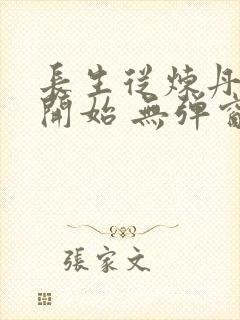 長生從煉丹
開始 無彈窗
張家文